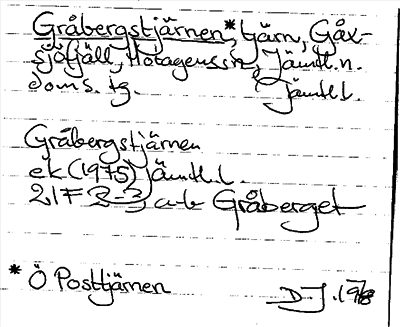 Gråbergstjärnen*, tjärn, Gåx-
sjöfjäll, Hotagens sn, Jämtl. n.
doms. tg. Jämtl. l.
Gråbergstjärnen
ek (1975) Jämtl. l.
21F 2-3 a-b Gråberget
* Ö Posttjärnen
D-J. 1978